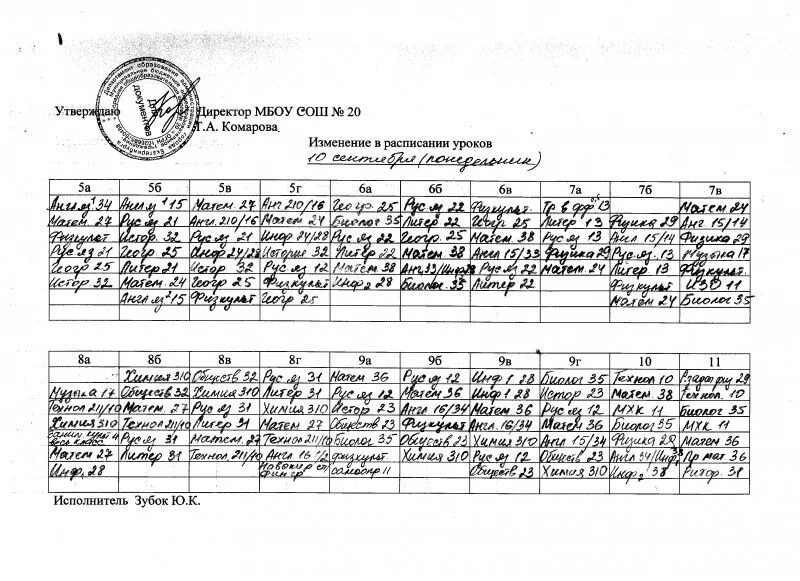 Утверждаю Директор МБОУ СОШ № 20
Т.А. Комарова
Изменение в расписании уроков
10 сентября (понедельник)
5а 5б 5в 5г 6а 6б 6в 7а 7б 7в
Англ 34 Англ 15 Матем 27 Анг 210/16 Геогр. 25 Рус яз 22 Физкульт. Тр в фф 13 Матем 24
Матем 27 Рус яз 21 Англ. 210/16 Матем 24 Биолог 35 Литер 22 Геогр 25 Литер 13 Физика 29 Анг 15/14
Физкульт Истор. 32 Рус яз 21 Инф 24/28 Рус яз 22 Геогр. 25 Матем 38 Рус яз 13 Англ 15/14 Физика 29
Рус яз 21 Геогр 25 Инф 24/28 История 32 Литер 22 Матем 38 Англ 15/33 Физика 29 Рус яз. 13 Музыка 17
Геогр 25 Литер 21 Истор 32 Рус яз 12 Матем 38 Анг 33/Инф 28 Рус яз 22 Матем. 24 Литер 13 Физкульт.
Истор 32 Матем. 24 Геогр 25 Физкульт Инф 2 28 Биолог. 35 Литер 22 Физкульт ИЗО 11
Англ яз 15 Физкульт Геогр 25 Матем 24 Биолог 35
8а 8б 8в 8г 9а 9б 9в 9г 10 11
Химия 310 Обществ 32 Рус яз 31 Матем 36 Рус яз 12 Инф 1 28 Биолог 35 Технол 10 29
Музыка 17 Обществ 32 Химия 310 Литер 31 Рус яз 12 Матем 36 Инф 1 28 Истор 23 Матем. 38 Технол. 10
Технол 211/10 Матем. 27 Рус яз 31 Химия 310 Истор 23 Англ 16/34 Матем 36 Рус яз 12 МХК 11 Биолог 35
Химия 310 Технол 211/10 Литер 31 Матем 27 Обществ 23 Физкульт Англ. 16/34 Матем 36 Биолог 35 МХК 11
весь класс Рус яз 31 Матем. 27 Технол 211/10 Биолог 35 Обществ 23 Химия 310 Англ 15/34 Физика 29 Матем 36
Матем 27 Литер 31 Технол 211/10 Англ 16 Физкульт Химия 310 Рус яз 12 Обществ 23 Англ 34/Инф 38 Пр мат 36
Инф 1 28 самоопр 11 Обществ 23 Химия 310 Инф 2 38 Ритор. 31
Исполнитель Зубок Ю.К.